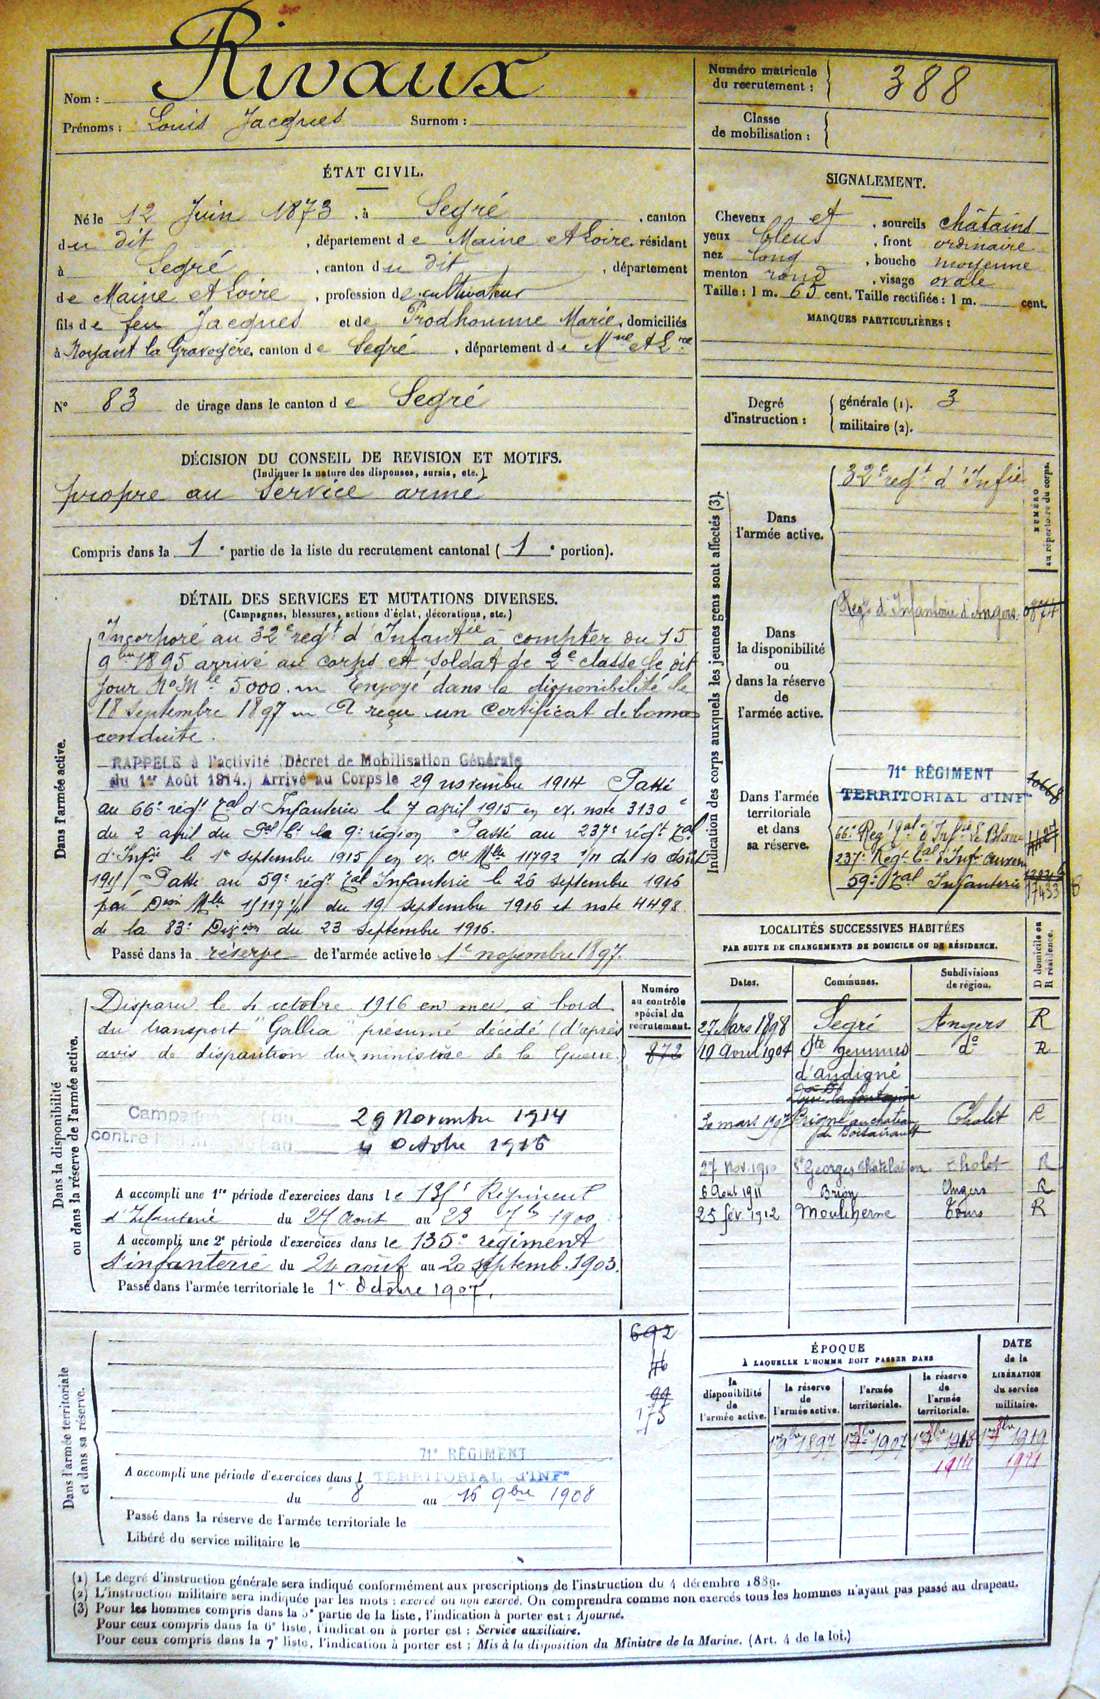 Nom : Rivaux
Prénoms : Louis Jacques Surnom :
Numéro matricule du recrutement : 388
Classe de mobilisation :
ÉTAT CIVIL.
Né le 12 Juin 1873, à Segré, canton
du dit, département de Maine et Loire, résidant
à Segré, canton du dit, département
de Maine et Loire, profession de cultivateur
fils de feu Jacques et de Prodhomme Marie, domiciliés
à Noyant la Gravoyère, canton de Segré, département de Mne et Lre
N° 83 de tirage dans le canton de Segré
SIGNALEMENT.
Cheveux et, sourcils châtains
yeux bleus, front ordinaire
nez long, bouche moyenne
menton rond, visage ovale
Taille : 1 m. 65 cent. Taille rectifiée : 1 m. cent.
MARQUES PARTICULIÈRES :
Degré d'instruction : générale (1). 3
militaire (2).
DÉCISION DU CONSEIL DE REVISION ET MOTIFS.
(Indiquer la nature des dispenses, sursis, etc.)
propre au service armé
Compris dans la 1e partie de la liste du recrutement cantonal (1e portion).
DÉTAIL DES SERVICES ET MUTATIONS DIVERSES.
(Campagnes, blessures, actions d'éclat, décorations, etc.)
Dans l'armée active.
Incorporé au 32e régt d'Infantie à compter du 15
9bre 1895 arrivé au corps et soldat de 2e classe le dit
jour No Mle 5000. Envoyé dans la disponibilité le
18 Septembre 1897 A reçu un certificat de bonne
conduite.
RAPPELÉ à l'activité (Décret de Mobilisation Générale
du 1er Août 1914.) Arrivé au Corps le 29 novembre 1914 Passé
au 66e régt tal d'Infanterie le 7 avril 1915 en ex. note 3130
du 2 avril du Gal Ct la 9e région Passé au 237e régt tal
d'Infie le 1er septembre 1915 en ex. cre Mlle 11792 du 10 Août
1915 Passé au 59e régt tal Infanterie le 26 septembre 1916
par Dson Mlle 15117 du 19 septembre 1916 et note 4498
de la 83e Division du 23 septembre 1916.
Passé dans la réserve de l'armée active le 1er novembre 1897.
Indication des corps auxquels les jeunes gens sont affectés (3).
NUMÉRO au répertoire du corps.
Dans l'armée active.
32e régt d'Infie
Dans la disponibilité ou dans la réserve de l'armée active.
Régt d'Infanterie d'Angers
Dans l'armée territoriale et dans sa réserve.
71e RÉGIMENT
TERRITORIAL d'INFie
66e Régt tal d'Infie Le Blanc
237e Régt tal d'Infie
59e tal Infanterie 17433
Dans la disponibilité ou dans la réserve de l'armée active.
Numéro au contrôle spécial du recrutement.
872
Disparu le 4 octobre 1916 en mer à bord
du transport "Gallia" présumé décédé (d'après
avis de disparition du ministère de la Guerre.)
Campagne
contre
29 Novembre 1914
4 Octobre 1916
A accompli une 1re période d'exercices dans le 135e Régiment
d'Infanterie du 27 Août au 23 7bre 1900
A accompli une 2e période d'exercices dans le 135e régiment
d'infanterie du 24 août au 20 septemb. 1903.
Passé dans l'armée territoriale le 1er Octobre 1907.
LOCALITÉS SUCCESSIVES HABITÉES
PAR SUITE DE CHANGEMENTS DE DOMICILE OU DE RÉSIDENCE.
Dates. Communes. Subdivisions de région. D domicile ou R résidence.
27 Mars 1898 Segré Angers R
10 Avril 1904 Ste Gemmes d'andigné do R
30 mars 1907 Brigné au château de Cholet R
27 Nov. 1910 St Georges Chatelaison Cholet R
6 Août 1911 Brion Angers R
25 fév. 1912 Mouliherne Tours R
Dans l'armée territoriale et dans sa réserve.
692
46
99
175
71e RÉGIMENT
A accompli une période d'exercices dans l TERRITORIAL d'INFie
du 8 au 16 9bre 1908
Passé dans la réserve de l'armée territoriale le
Libéré du service militaire le
ÉPOQUE
À LAQUELLE L'HOMME DOIT PASSER DANS
la disponibilité de l'armée active. la réserve de l'armée active. l'armée territoriale. la réserve de l'armée territoriale.
DATE de la LIBÉRATION du service militaire.
1er 9bre 1897 1907 1913 1919
(1) Le degré d'instruction générale sera indiqué conformément aux prescriptions de l'instruction du 4 décembre 1889.
(2) L'instruction militaire sera indiquée par les mots : exercé ou non exercé. On comprendra comme non exercés tous les hommes n'ayant pas passé au drapeau.
(3) Pour les hommes compris dans la 5e partie de la liste, l'indication à porter est : Ajourné.
Pour ceux compris dans la 6e liste, l'indication à porter est : Service auxiliaire.
Pour ceux compris dans la 7e liste, l'indication à porter est : Mis à la disposition du Ministre de la Marine. (Art. 4 de la loi.)